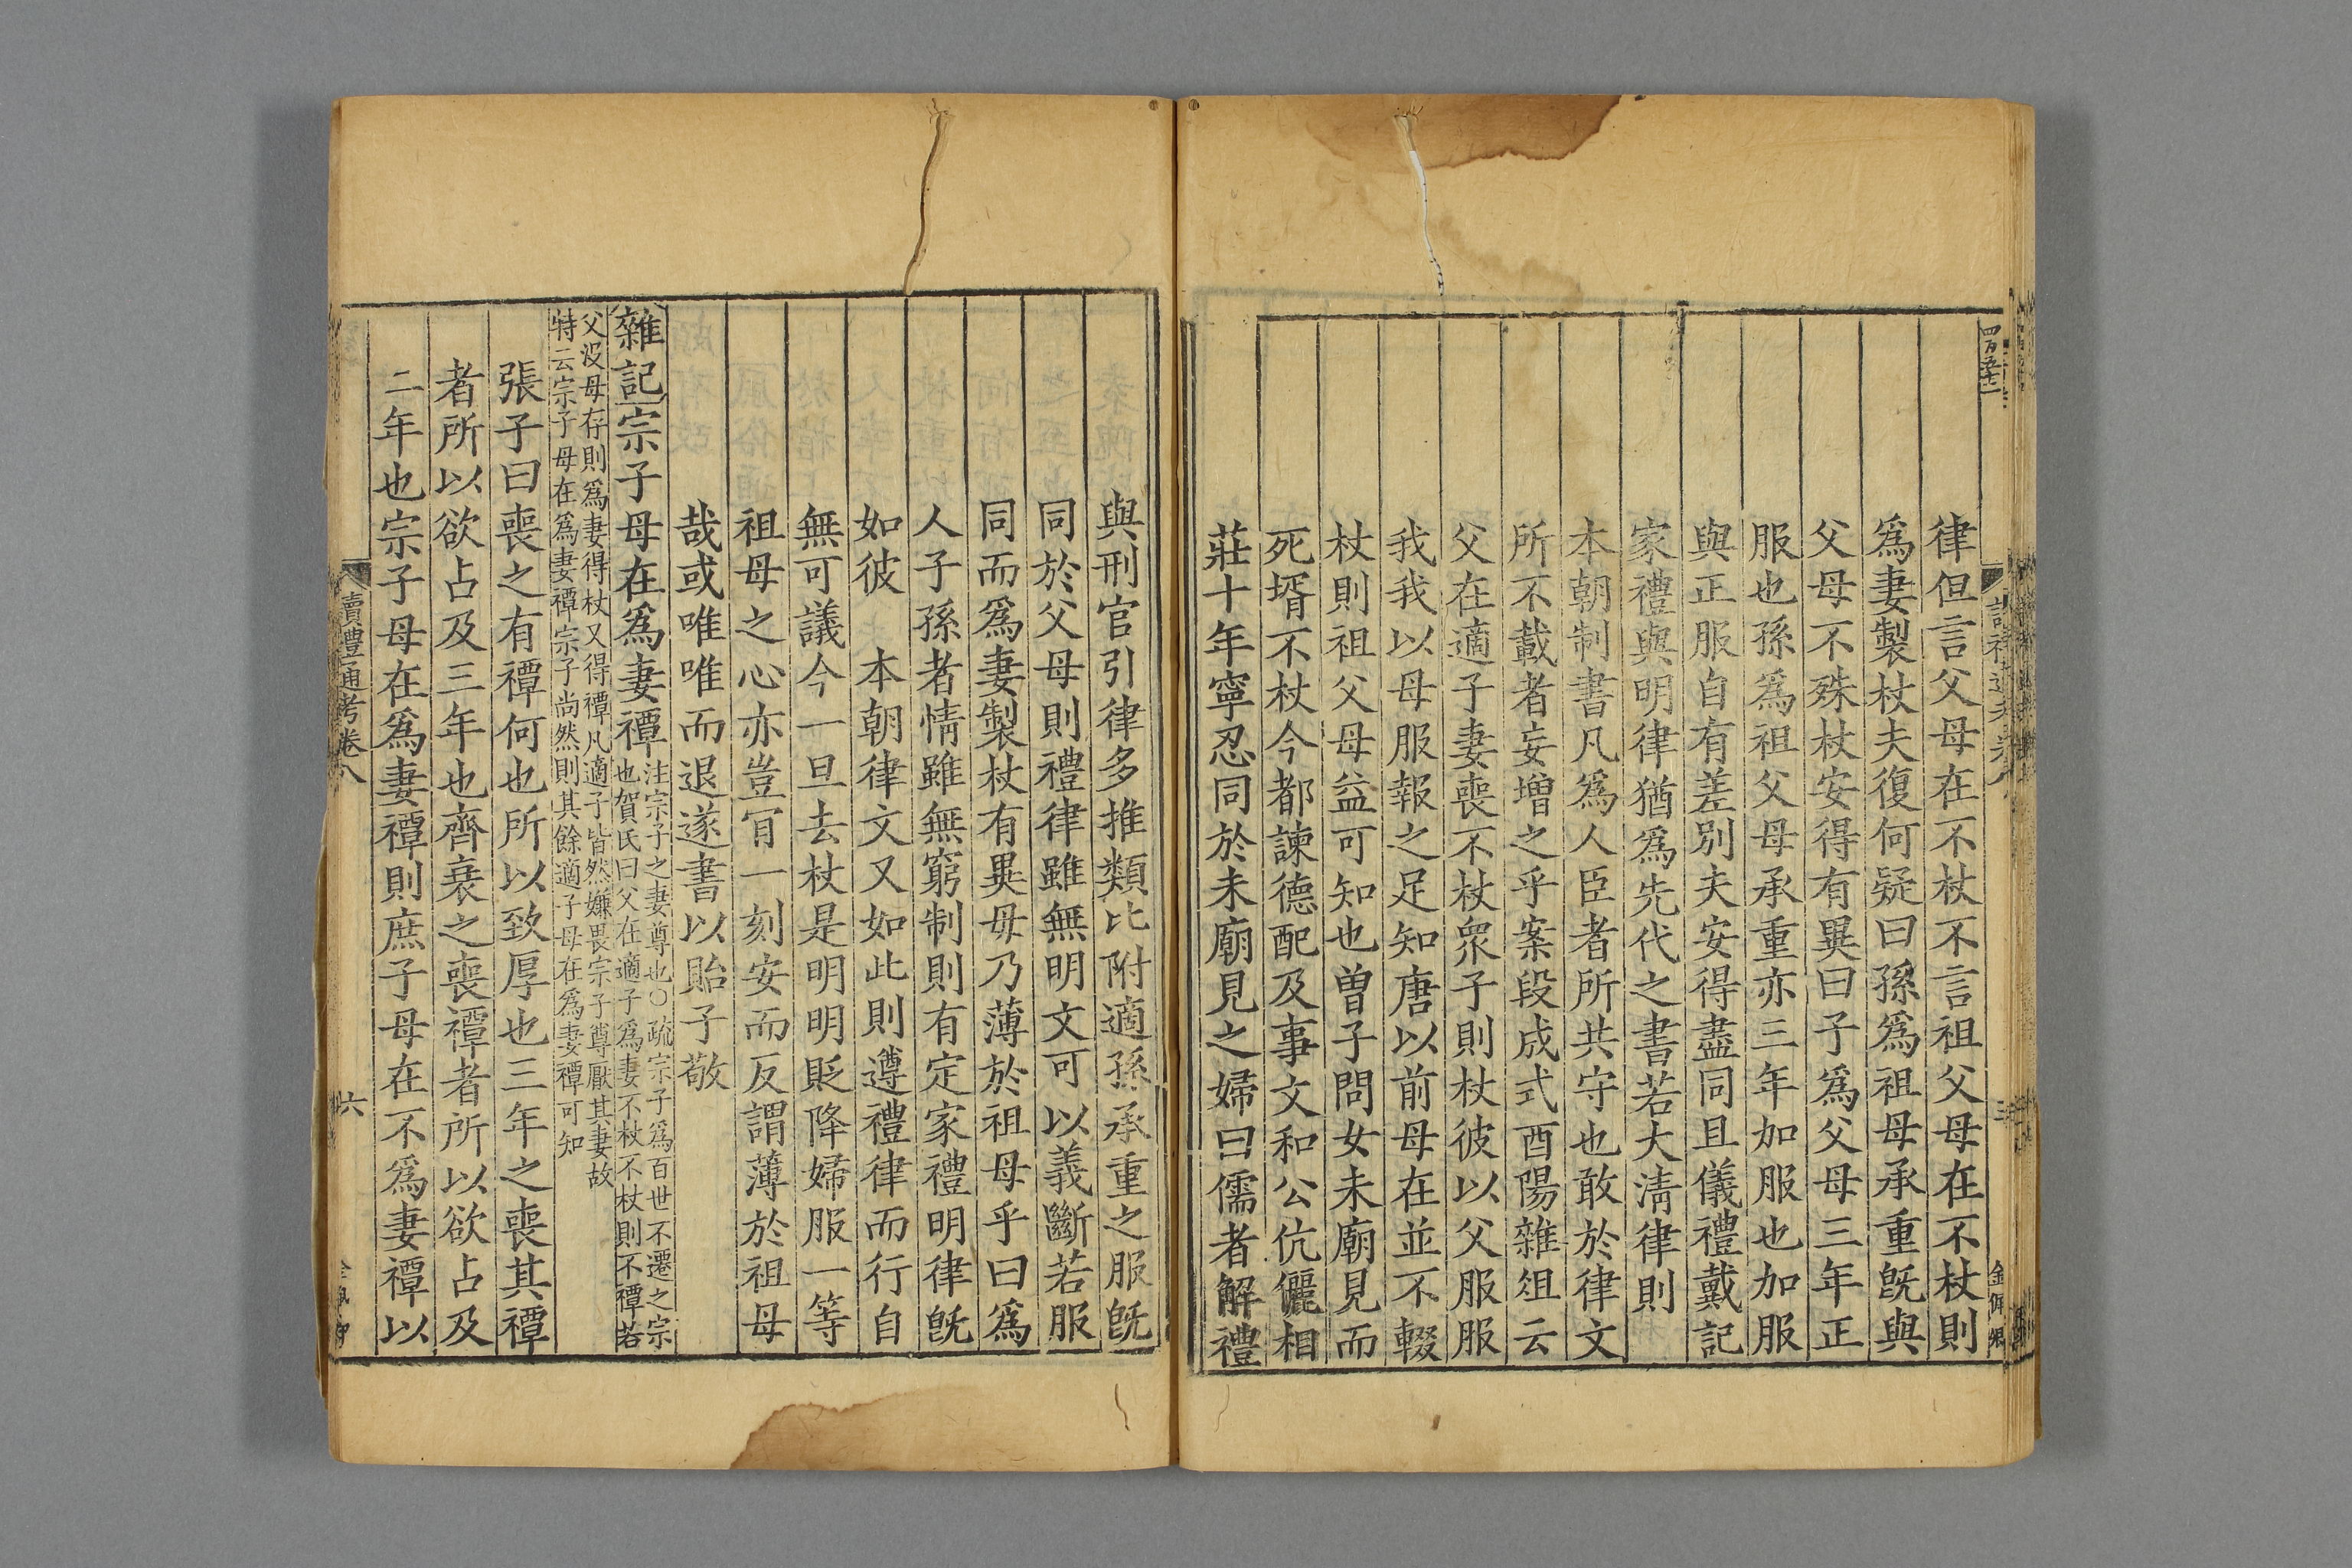 律但言父母在不杖不言祖父母在不杖則
爲妻製杖夫復何疑曰孫爲祖母承重旣與
父母不殊杖安得有異曰子爲父母三年正
服也孫爲祖父母承重亦三年加服也加服
與正服自有差別夫安得盡同且儀禮戴記
家禮與明律猶爲先代之書若大淸律則
本朝制書凡爲人臣者所共守也敢於律文
所不載者妄增之乎案段成式酉陽雜俎云
父在適子妻喪不杖衆子則杖彼以父服服
我我以母服報之足知唐以前母在並不輟
杖則祖父母益可知也曾子問女未廟見而
死壻不杖今都諫德配及事文和公伉儷相
莊十年寧忍同於未廟見之婦曰儒者解禮
與刑官引律多推類比附適孫承重之服旣
同於父母則禮律雖無明文可以義斷若服
同而爲妻製杖有異毋乃薄於祖母乎曰爲
人子孫者情雖無窮制則有定家禮明律旣
如彼 本朝律文又如此則遵禮律而行自
無可議今一旦去杖是明明貶降婦服一等
祖母之心亦豈肎一刻安而反謂薄於祖母
哉或唯唯而退遂書以貽子敬
雜記宗子母在爲妻禫注宗子之妻尊也○疏宗子爲百世不遷之宗
也賀氏曰父在適子爲妻不杖不杖則不禫若
父没母存則爲妻得杖又得禫凡適子皆然嫌畏宗子尊厭其妻故
特云宗子母在爲妻禫宗子尚然則其餘適子母在爲妻禫可知
張子曰喪之有禫何也所以致厚也三年之喪其禫
者所以欲占及三年也齊衰之喪禫者所以欲占及
二年也宗子母在爲妻禫則庶子母在不爲妻禫以
讀禮通考卷八
六